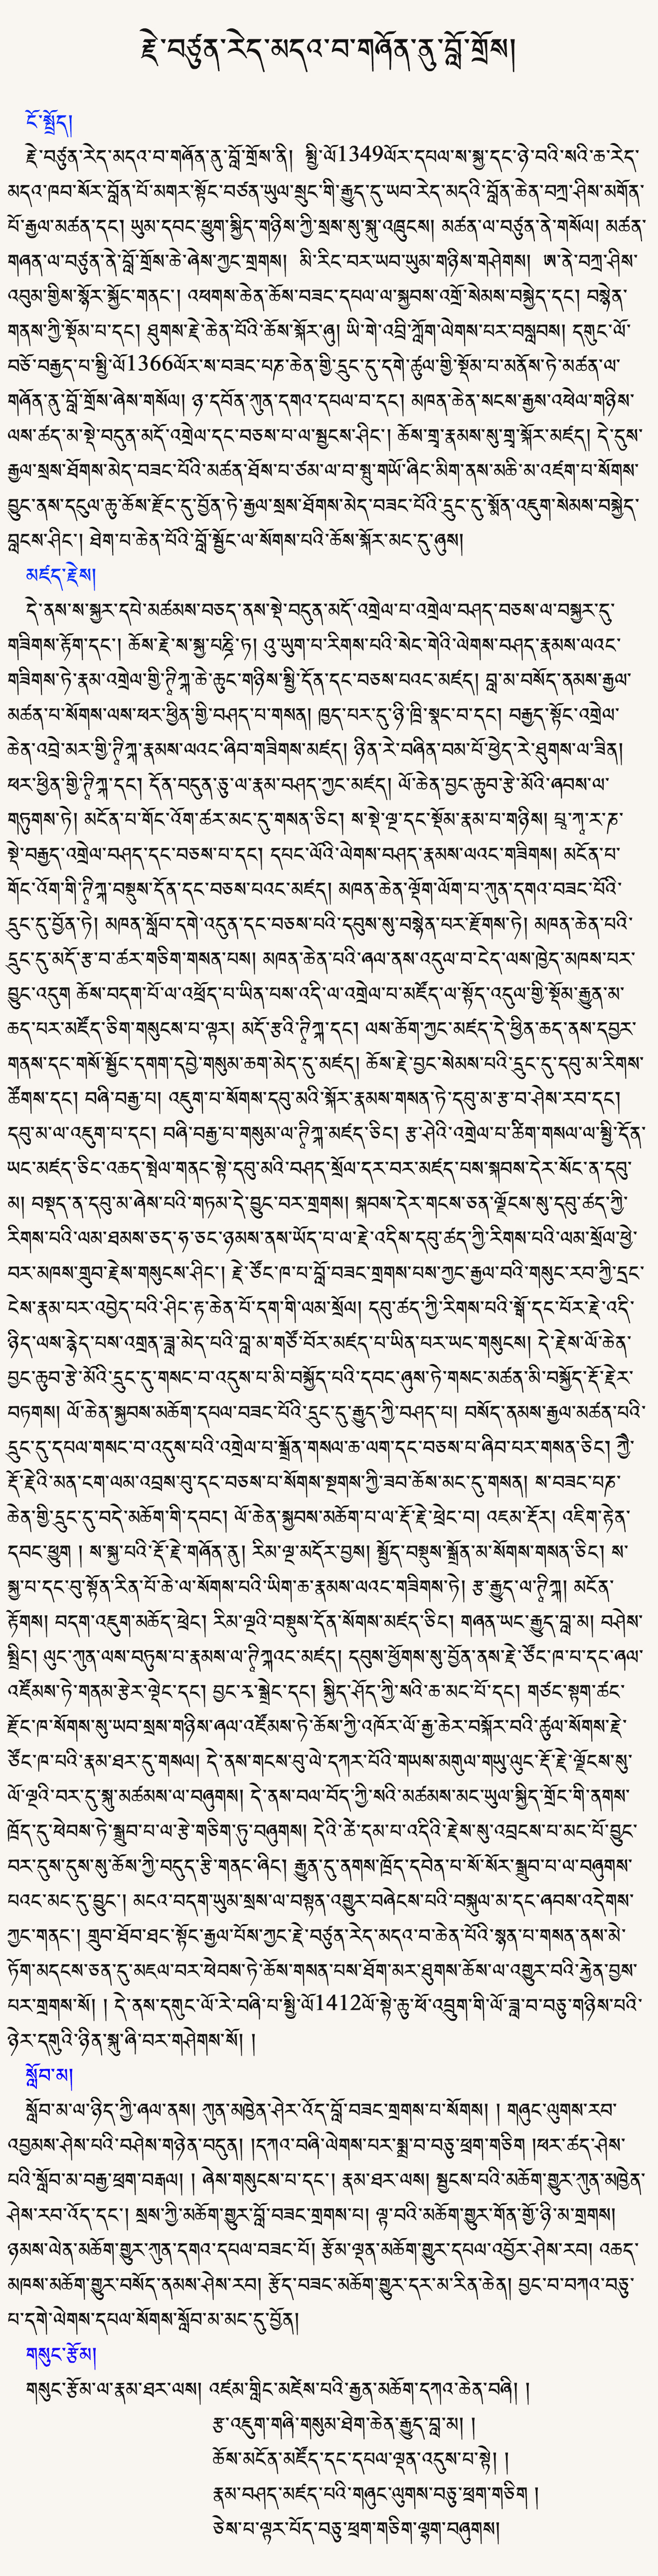 རྗེ་བཙུན་རེད་མདའ་བ་གཞོན་ནུ་བློ་གྲོས།
ངོ་སྤྲོད།
རྗེ་བཙུན་རེད་མདའ་བ་གཞོན་ནུ་བློ་གྲོས་ནི། སྤྱི་ལོ1349ལོར་དཔལ་ས་སྐྱ་དང་ཉེ་བའི་སའི་ཆ་རེད་
མདའ་ཁབ་སོར་བློན་པོ་མགར་སྟོང་བཙན་ཡུལ་སྲུང་གི་རྒྱུད་དུ་ཡབ་རེད་མདའི་བློན་ཆེན་བཀྲ་ཤིས་མགོན་
པོ་རྒྱལ་མཚན་དང། ཡུམ་དབང་ཕྱུག་སྐྱིད་གཉིས་ཀྱི་སྲས་སུ་སྐུ་འཁྲུངས། མཚན་ལ་བཙུན་ནེ་གསོལ། མཚན་
གཞན་ལ་བཙུན་ནེ་བློ་གྲོས་ཆེ་ཞེས་ཀྱང་གྲགས། མི་རིང་བར་ཡབ་ཡུམ་གཉིས་གཤེགས། ཨ་ནེ་བཀྲ་ཤིས་
འབུམ་གྱིས་སྐྱོར་སྐྱོང་གནང་། འཕགས་ཆེན་ཆོས་བཟང་དཔལ་ལ་སྐྱབས་འགྲོ་སེམས་བསྐྱེད་དང། བསྙེན་
གནས་ཀྱི་སྡོམ་པ་དང། ཐུགས་རྗེ་ཆེན་པོའི་ཆོས་སྐོར་ཞུ། ཡི་གེ་འབྲི་ཀློག་ལེགས་པར་བསླབས། དགུང་ལོ་
བཅོ་བརྒྱད་པ་སྤྱི་ལོ1366ལོར་ས་བཟང་པཎ་ཆེན་གྱི་དྲུང་དུ་དགེ་ཚུལ་གྱི་སྡོམ་པ་མནོས་ཏེ་མཚན་ལ་
གཞོན་ནུ་བློ་གྲོས་ཞེས་གསོལ། ཉ་དབོན་ཀུན་དགའ་དཔལ་བ་དང། མཁན་ཆེན་སངས་རྒྱས་འཕེལ་གཉིས་
ལས་ཚད་མ་སྡེ་བདུན་མདོ་འགྲེལ་དང་བཅས་པ་ལ་སྦྱངས་ཤིང་། ཆོས་གྲྭ་རྣམས་སུ་གྲྭ་སྐོར་མཛད། དེ་དུས་
རྒྱལ་སྲས་ཐོགས་མེད་བཟང་པོའི་མཚན་ཐོས་པ་ཙམ་ལ་བ་སྤུ་གཡོ་ཞིང་མིག་ནས་མཆི་མ་འཛག་པ་སོགས་
བྱུང་ནས་དངུལ་ཆུ་ཆོས་རྫོང་དུ་བྱོན་ཏེ་རྒྱལ་སྲས་ཐོགས་མེད་བཟང་པོའི་དྲུང་དུ་སྨོན་འཇུག་སེམས་བསྐྱེད་
བླངས་ཤིང་། ཐེག་པ་ཆེན་པོའི་བློ་སྦྱོང་ལ་སོགས་པའི་ཆོས་སྐོར་མང་དུ་ཞུས།
མཛད་རྗེས།
དེ་ནས་ས་སྐྱར་དཔེ་མཚམས་བཅད་ནས་སྡེ་བདུན་མདོ་འགྲེལ་པ་འགྲེལ་བཤད་བཅས་ལ་བསྐྱར་དུ་
གཟིགས་རྟོག་དང་། ཆོས་རྗེ་ས་སྐྱ་པཎྜི་ཏ། འུ་ཡུག་པ་རིགས་པའི་སེང་གེའི་ལེགས་བཤད་རྣམས་ལའང་
གཟིགས་ཏེ་རྣམ་འགྲེལ་གྱི་ཊཱིཀྐ་ཆེ་ཆུང་གཉིས་སྤྱི་དོན་དང་བཅས་པའང་མཛད། བླ་མ་བསོད་ནམས་རྒྱལ་
མཚན་པ་སོགས་ལས་ཕར་ཕྱིན་གྱི་བཤད་པ་གསན། ཁྱད་པར་དུ་ཉི་ཁྲི་སྣང་བ་དང། བརྒྱད་སྟོང་འགྲེལ་
ཆེན་འབྲེ་མར་གྱི་ཊཱིཀྐ་རྣམས་ལའང་ཞིབ་གཟིགས་མཛད། ཉིན་རེ་བཞིན་བམ་པོ་ཕྱེད་རེ་ཐུགས་ལ་ཟིན།
ཕར་ཕྱིན་གྱི་ཊཱིཀྐ་དང། དོན་བདུན་ཅུ་ལ་རྣམ་བཤད་ཀྱང་མཛད། ལོ་ཆེན་བྱང་ཆུབ་རྩེ་མོའི་ཞབས་ལ་
གཏུགས་ཏེ། མངོན་པ་གོང་འོག་ཚར་མང་དུ་གསན་ཅིང། ས་སྡེ་ལྔ་དང་སྡོམ་རྣམ་པ་གཉིས། པྲ་ཀ་ར་ཎ་
སྡེ་བརྒྱད་འགྲེལ་བཤད་དང་བཅས་པ་དང། དཔང་ལོའི་ལེགས་བཤད་རྣམས་ལའང་གཟིགས། མངོན་པ་
གོང་འོག་གི་ཊཱིཀྐ་བསྡུས་དོན་དང་བཅས་པའང་མཛད། མཁན་ཆེན་ལྡོག་ལོག་པ་ཀུན་དགའ་བཟང་པོའི་
དྲུང་དུ་བྱོན་ཏེ། མཁན་སློབ་དགེ་འདུན་དང་བཅས་པའི་དབུས་སུ་བསྙེན་པར་རྫོགས་ཏེ། མཁན་ཆེན་པའི་
དྲུང་དུ་མདོ་རྩ་བ་ཚར་གཅིག་གསན་པས། མཁན་ཆེན་པའི་ཞལ་ནས་འདུལ་བ་ངེད་ལས་ཁྱེད་མཁས་པར་
བྱུང་འདུག ཆོས་བདག་པོ་ལ་འཕྲོད་པ་ཡིན་པས་འདི་ལ་འགྲེལ་པ་མཛོད་ལ་སྟོད་འདུལ་གྱི་སྡོམ་རྒྱུན་མ་
ཆད་པར་མཛོད་ཅིག་གསུངས་པ་ལྟར། མདོ་རྩའི་ཊཱིཀྐ་དང། ལས་ཆོག་ཀྱང་མཛད་དེ་ཕྱིན་ཆད་ནས་དབྱར་
གནས་དང་གསོ་སྦྱོང་དགག་དབྱེ་གསུམ་ཆག་མེད་དུ་མཛད། ཆོས་རྗེ་བྱང་སེམས་པའི་དྲུང་དུ་དབུ་མ་རིགས་
ཚོགས་དང། བཞི་བརྒྱ་པ། འཇུག་པ་སོགས་དབུ་མའི་སྐོར་རྣམས་གསན་ཏེ་དབུ་མ་རྩ་བ་ཤེས་རབ་དང།
དབུ་མ་ལ་འཇུག་པ་དང། བཞི་བརྒྱ་པ་གསུམ་ལ་ཊཱིཀྐ་མཛད་ཅིང། རྩ་ཤེའི་འགྲེལ་པ་ཚིག་གསལ་ལ་སྤྱི་དོན་
ཡང་མཛད་ཅིང་འཆད་སྤེལ་གནང་སྟེ་དབུ་མའི་བཤད་སྲོལ་དར་བར་མཛད་པས་སྐབས་དེར་སོང་ན་དབུ་
མ། བསྡད་ན་དབུ་མ་ཞེས་པའི་གཏམ་དེ་བྱུང་བར་གྲགས། སྐབས་དེར་གངས་ཅན་ལྗོངས་སུ་དབུ་ཚད་ཀྱི་
རིགས་པའི་ལམ་ཐམས་ཅད་ཧ་ཅང་ཉམས་ནས་ཡོད་པ་ལ་རྗེ་འདིས་དབུ་ཚད་ཀྱི་རིགས་པའི་ལམ་སྲོལ་ཕྱེ་
བར་མཁས་གྲུབ་རྗེས་གསུངས་ཤིང་། རྗེ་ཙོང་ཁ་པ་བློ་བཟང་གྲགས་པས་ཀྱང་རྒྱལ་བའི་གསུང་རབ་ཀྱི་དྲང་
ངེས་རྣམ་པར་འབྱེད་པའི་ཤིང་རྟ་ཆེན་པོ་དག་གི་ལམ་སྲོལ། དབུ་ཚད་ཀྱི་རིགས་པའི་སྒོ་དང་པོར་རྗེ་འདི་
ཉིད་ལས་རྙེད་པས་འགྲན་ཟླ་མེད་པའི་བླ་མ་གཙོ་བོར་མཛད་པ་ཡིན་པར་ཡང་གསུངས། དེ་རྗེས་ལོ་ཆེན་
བྱང་ཆུབ་རྩེ་མོའི་དྲུང་དུ་གསང་བ་འདུས་པ་མི་བསྐྱོད་པའི་དབང་ཞུས་ཏེ་གསང་མཚན་མི་བསྐྱོད་རྡོ་རྗེར་
བཏགས། ལོ་ཆེན་སྐྱབས་མཆོག་དཔལ་བཟང་པོའི་དྲུང་དུ་རྒྱུད་ཀྱི་བཤད་པ། བསོད་ནམས་རྒྱལ་མཚན་པའི་
དྲུང་དུ་དཔལ་གསང་བ་འདུས་པའི་འགྲེལ་པ་སྒྲོན་གསལ་ཆ་ལག་དང་བཅས་པ་ཞིབ་པར་གསན་ཅིང། ཀྱཻ་
རྡོ་རྗེའི་མན་ངག་ལམ་འབྲས་བུ་དང་བཅས་པ་སོགས་སྔགས་ཀྱི་ཟབ་ཆོས་མང་དུ་གསན། ས་བཟང་པཎ་
ཆེན་གྱི་དྲུང་དུ་བདེ་མཆོག་གི་དབང། ལོ་ཆེན་སྐྱབས་མཆོག་པ་ལ་རྡོ་རྗེ་ཕྲེང་བ། འཇམ་རྡོར། འཇིག་རྟེན་
དབང་ཕྱུག ། ས་སྐྱ་པའི་རྡོ་རྗེ་གཞོན་ནུ། རིམ་ལྔ་མདོར་བྱས། སྤྱོད་བསྡུས་སྒྲོན་མ་སོགས་གསན་ཅིང། ས་
སྐྱ་པ་དང་བུ་སྟོན་རིན་པོ་ཆེ་ལ་སོགས་པའི་ཡིག་ཆ་རྣམས་ལའང་གཟིགས་ཏེ། རྩ་རྒྱུད་ལ་ཊཱིཀྐ། མངོན་
རྟོགས། བདག་འཇུག་མཆོད་ཕྲེང། རིམ་ལྔའི་བསྡུས་དོན་སོགས་མཛད་ཅིང། གཞན་ཡང་རྒྱུད་བླ་མ། བཤེས་
སྤྲིང། ལུང་ཀུན་ལས་བཏུས་པ་རྣམས་ལ་ཊཱིཀྐའང་མཛད། དབུས་ཕྱོགས་སུ་བྱོན་ནས་རྗེ་ཙོང་ཁ་པ་དང་ཞལ་
འཛོམས་ཏེ་གནམ་རྩེར་ལྡེང་དང། བྱང་ར་སྒྲེང་དང། སྐྱིད་ཤོད་ཀྱི་སའི་ཆ་མང་པོ་དང། གཙང་སྟག་ཚང་
རྫོང་ཁ་སོགས་སུ་ཡབ་སྲས་གཉིས་ཞལ་འཛོམས་ཏེ་ཆོས་ཀྱི་འཁོར་ལོ་རྒྱ་ཆེར་བསྐོར་བའི་ཚུལ་སོགས་རྗེ་
ཙོང་ཁ་པའི་རྣམ་ཐར་དུ་གསལ། དེ་ནས་གངས་བུ་ལེ་དཀར་པོའི་གཡས་མགུལ་གཡུ་ལུང་རྡོ་རྗེ་ལྗོངས་སུ་
ལོ་ལྔའི་བར་དུ་སྐུ་མཚམས་ལ་བཞུགས། དེ་ནས་བལ་བོད་ཀྱི་སའི་མཚམས་མང་ཡུལ་སྐྱིད་གྲོང་གི་ནགས་
ཁྲོད་དུ་ཕེབས་ཏེ་སྒྲུབ་པ་ལ་རྩེ་གཅིག་ཏུ་བཞུགས། དེའི་ཚེ་དམ་པ་འདིའི་རྗེས་སུ་འབྲངས་པ་མང་པོ་བྱུང་
བར་དུས་དུས་སུ་ཆོས་ཀྱི་བདུད་རྩི་གནང་ཞིང། རྒྱུན་དུ་ནགས་ཁྲོད་དབེན་པ་སོ་སོར་སྒྲུབ་པ་ལ་བཞུགས་
པའང་མང་དུ་བྱུང་། མངའ་བདག་ཡུམ་སྲས་ལ་བསྟན་འགྱུར་བཞེངས་པའི་བསྐུལ་མ་དང་ཞབས་འདེགས་
ཀྱང་གནང་། གྲུབ་ཐོབ་ཐང་སྟོང་རྒྱལ་པོས་ཀྱང་རྗེ་བཙུན་རེད་མདའ་བ་ཆེན་པོའི་སྙན་པ་གསན་ནས་མེ་
ཏོག་མདངས་ཅན་དུ་མཇལ་བར་ཕེབས་ཏེ་ཆོས་གསན་པས་ཐོག་མར་ཐུགས་ཆོས་ལ་འགྱུར་བའི་རྐྱེན་བྱས་
པར་གྲགས་སོ། ། དེ་ནས་དགུང་ལོ་རེ་བཞི་པ་སྤྱི་ལོ1412ལོ་སྟེ་ཆུ་ཕོ་འབྲུག་གི་ལོ་ཟླ་བ་བཅུ་གཉིས་པའི་
ཉེར་དགུའི་ཉིན་སྐུ་ཞི་བར་གཤེགས་སོ། །
སློབ་མ།
སློབ་མ་ལ་ཉིད་ཀྱི་ཞལ་ནས། ཀུན་མཁྱེན་ཤེར་འོད་བློ་བཟང་གྲགས་པ་སོགས། ། གཞུང་ལུགས་རབ་
འབྱམས་ཤེས་པའི་བཤེས་གཉེན་བདུན། །དཀའ་བཞི་ལེགས་པར་སྨྲ་བ་བཅུ་ཕྲག་གཅིག །ཕར་ཚད་ཤེས་
པའི་སློབ་མ་བརྒྱ་ཕྲག་བརྒལ། ། ཞེས་གསུངས་པ་དང་། རྣམ་ཐར་ལས། སྦྱངས་པའི་མཆོག་གྱུར་ཀུན་མཁྱེན་
ཤེས་རབ་འོད་དང་། སྲས་ཀྱི་མཆོག་གྱུར་བློ་བཟང་གྲགས་པ། ལྟ་བའི་མཆོག་གྱུར་གོན་གྱོ་ཉི་མ་གྲགས།
ཉམས་ལེན་མཆོག་གྱུར་ཀུན་དགའ་དཔལ་བཟང་པོ། རྩོམ་ལྡན་མཆོག་གྱུར་དཔལ་འབྱོར་ཤེས་རབ། འཆད་
མཁས་མཆོག་གྱུར་བསོད་ནམས་ཤེས་རབ། རྩོད་བཟང་མཆོག་གྱུར་དར་མ་རིན་ཆེན། བྱང་བ་བཀའ་བཅུ་
པ་དགེ་ལེགས་དཔལ་སོགས་སློབ་མ་མང་དུ་བྱོན།
གསུང་རྩོམ།
གསུང་རྩོམ་ལ་རྣམ་ཐར་ལས། འཛམ་གླིང་མཛེས་པའི་རྒྱན་མཆོག་དཀའ་ཆེན་བཞི། །
རྩ་འཇུག་གཞི་གསུམ་ཐེག་ཆེན་རྒྱུད་བླ་མ། །
ཆོས་མངོན་མཛོད་དང་དཔལ་ལྡན་འདུས་པ་སྟེ། །
རྣམ་བཤད་མཛད་པའི་གཞུང་ལུགས་བཅུ་ཕྲག་གཅིག །
ཅེས་པ་ལྟར་པོད་བཅུ་ཕྲག་གཅིག་ལྷག་བཞུགས།